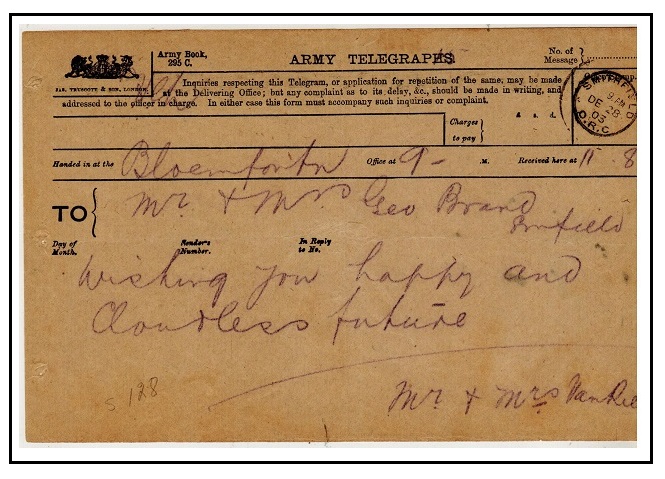 Army Book,
295 C.
ARMY TELEGRAPHS
No. of
Message
JAS. TRUSCOTT & SON, LONDON.
Inquiries respecting this Telegram, or application for repetition of the same, may be made
at the Delivering Office; but any complaint as to its delay, &c., should be made in writing, and
addressed to the officer in charge. In either case this form must accompany such inquiries or complaint.
SMITHFIELD
9 PM
DE 28
03
O.R.C
Charges
to pay
£ s. d.
Handed in at the Bloemfontn Office at 9 - .M. Received here at 11 8
TO Mr & Mrs Geo Brand
Smifield
Day of
Month.
Sender's
Number.
In Reply
to No.
Wishing you happy and
Cloudless future
Mr & Mrs VanRie
S 128